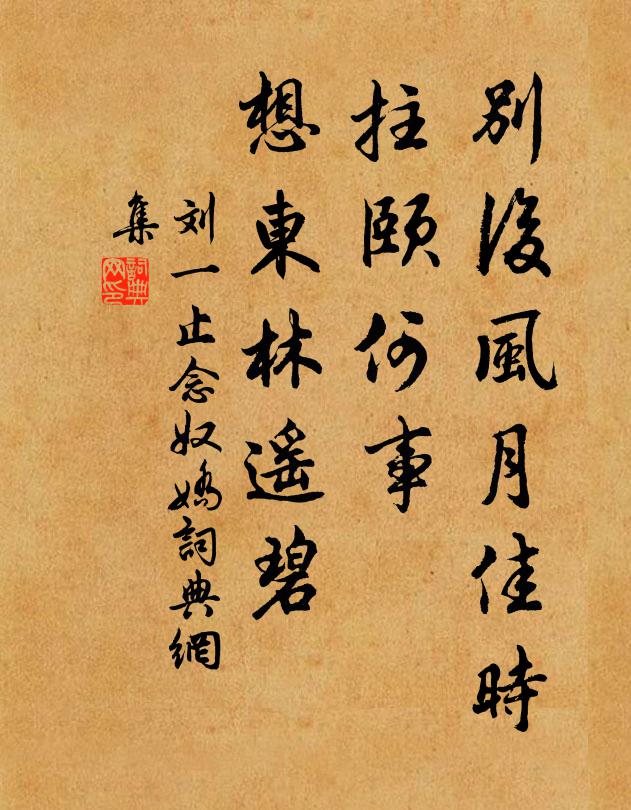 別後風月佳時
拄頤何事
想東林遥碧
刘一止念奴嬌詞典網
集
詞典
网印